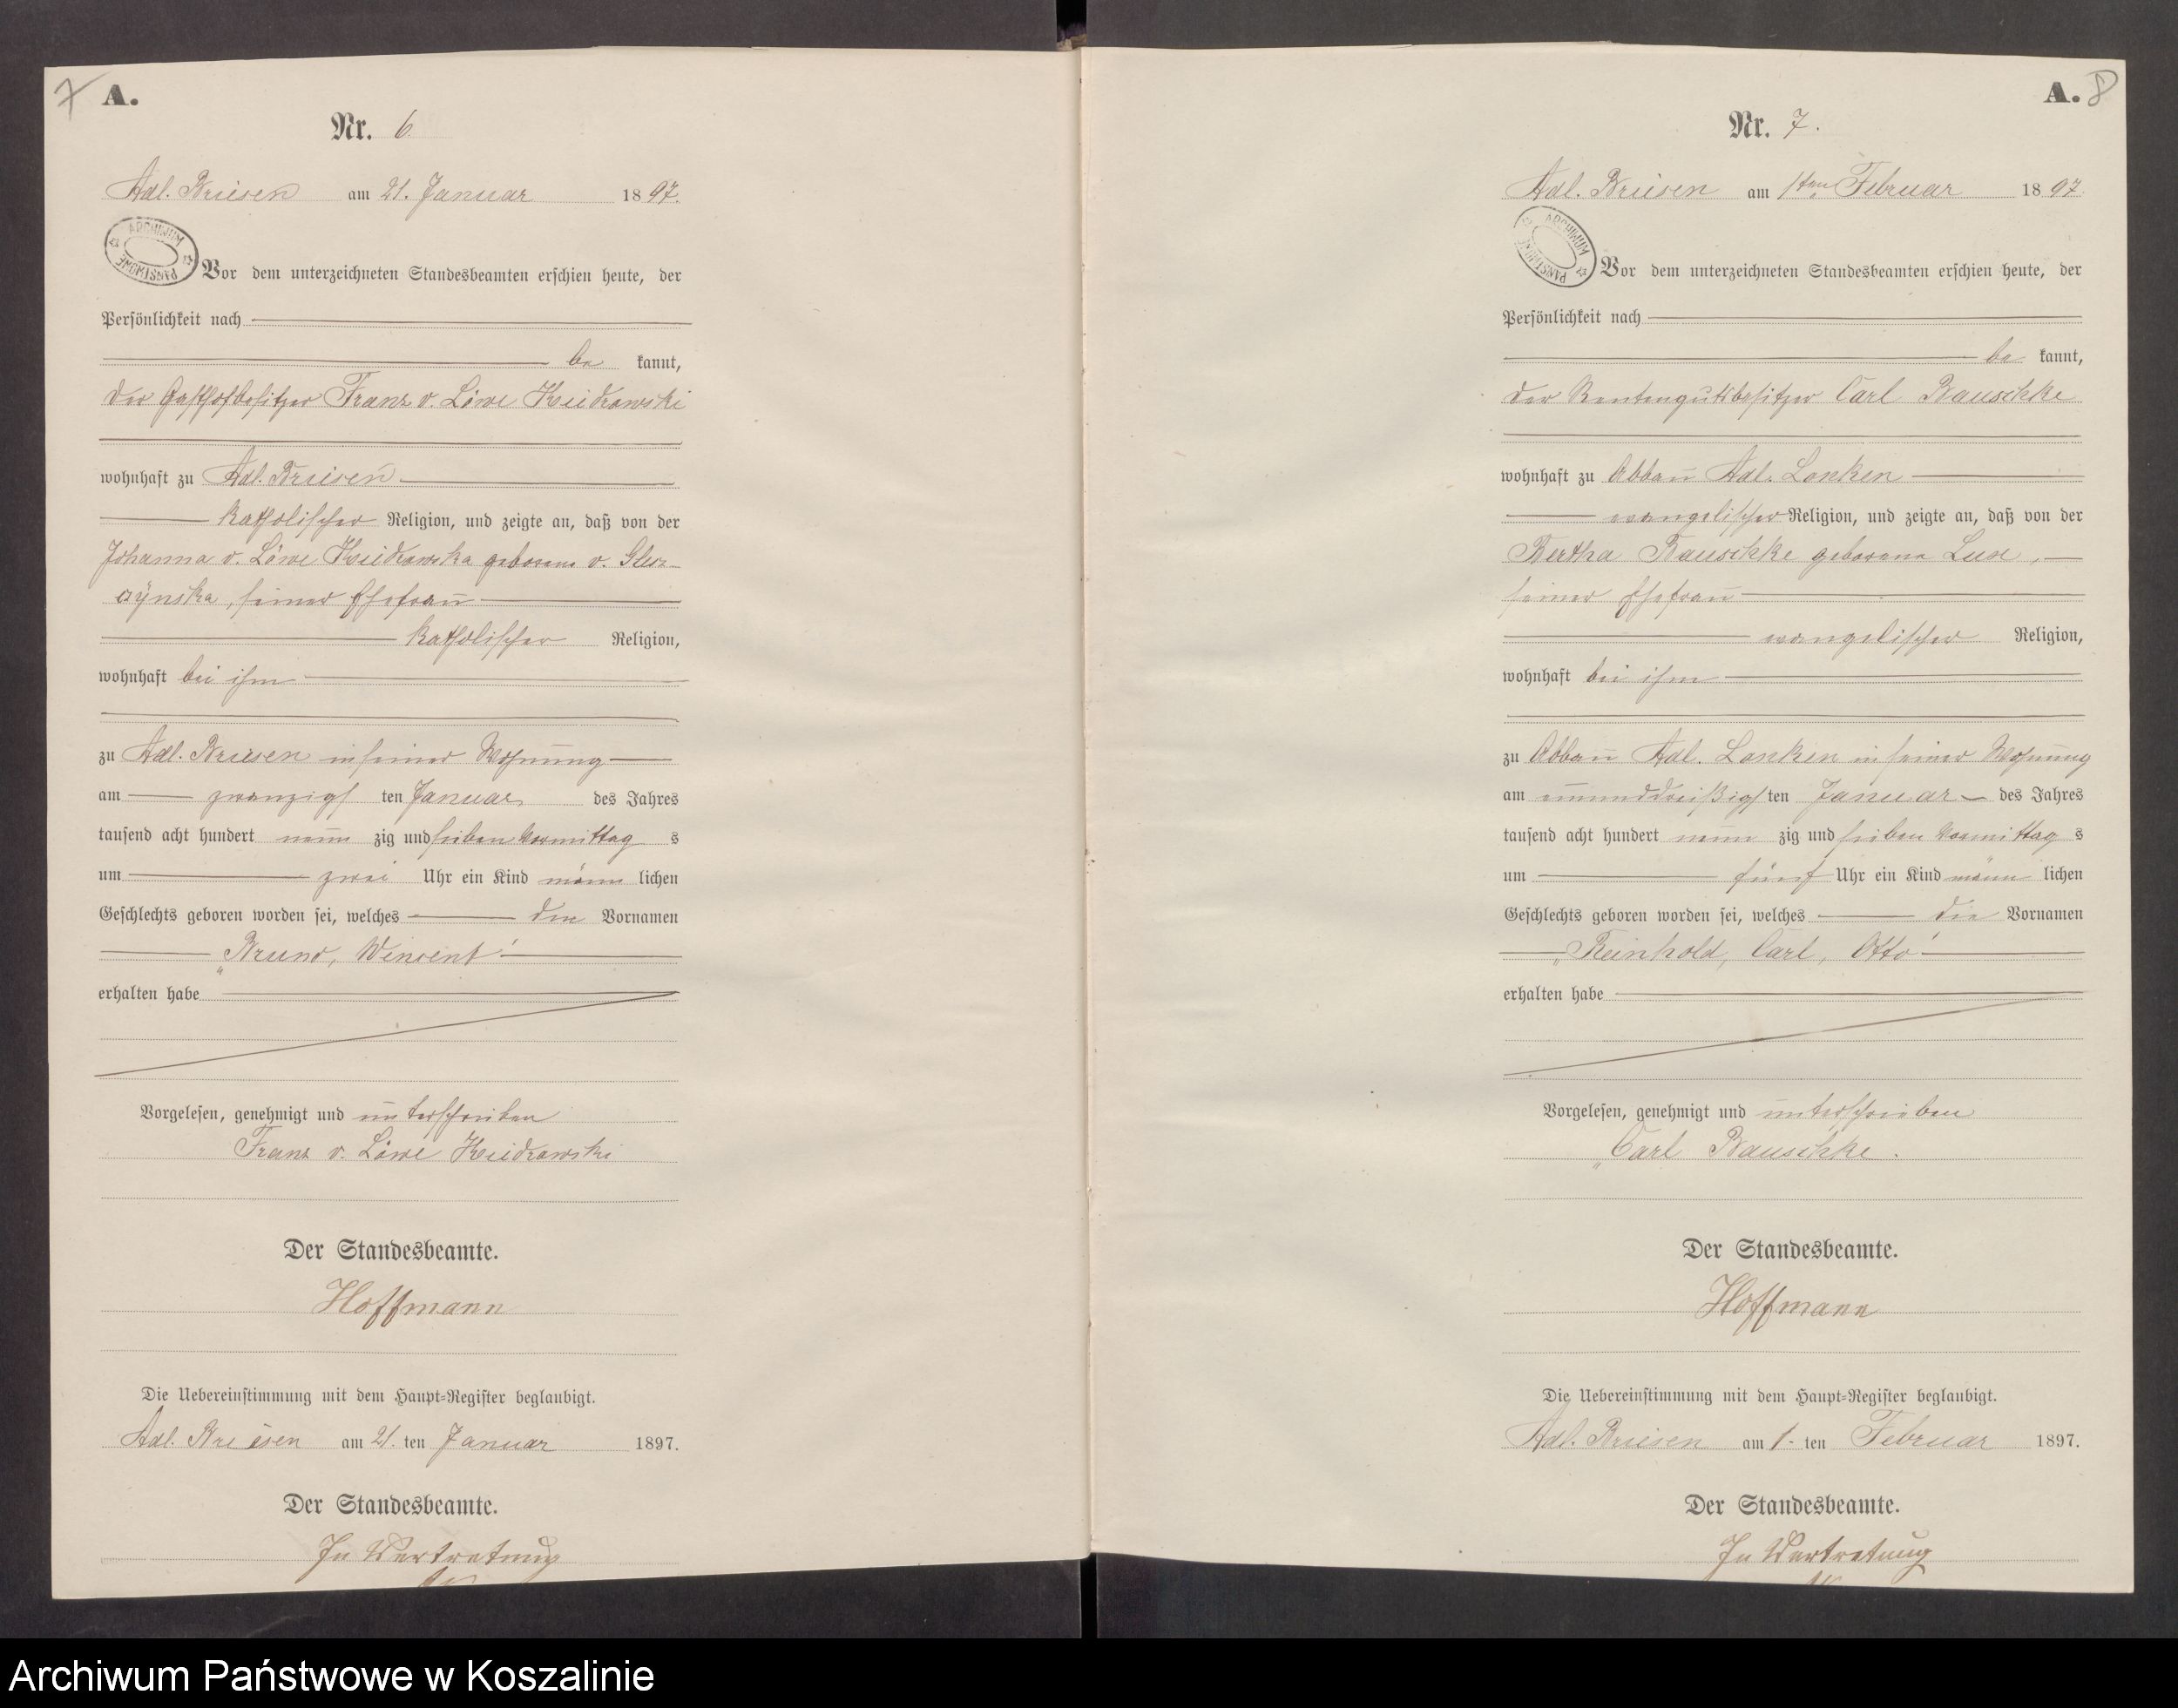 7
A.
Nr. 6.
Adl. Briesen am 21. Januar 1897.
ARCHIWUM PAŃSTWOWE
Vor dem unterzeichneten Standesbeamten erschien heute, der
Persönlichkeit nach
be kannt,
der Gasthofbesitzer Franz v. Löwe
wohnhaft zu Adl. Briesen
katholischer Religion, und zeigte an, daß von der
Johanna v. Löwe geborene v.
seiner Ehefrau
katholischer Religion,
wohnhaft bei ihm
zu Adl. Briesen in seiner Wohnung
am zwanzigsten Januar des Jahres
tausend acht hundert neun zig und sieben Vormittag s
um zwei Uhr ein Kind männ lichen
Geschlechts geboren worden sei, welches die Vornamen
„Bruno, Wincent“
erhalten habe
Vorgelesen, genehmigt und unterschrieben
Franz v. Löwe
Der Standesbeamte.
Hoffmann
Die Uebereinstimmung mit dem Haupt=Register beglaubigt.
Adl. Briesen am 21. ten Januar 1897.
Der Standesbeamte.
In Vertretung
A. 8
Nr. 7.
Adl. Briesen am 1ten Februar 1897
ARCHIWUM PAŃSTWOWE
Vor dem unterzeichneten Standesbeamten erschien heute, der
Persönlichkeit nach
be kannt,
der Rentengutsbesitzer Carl Bauschke
wohnhaft zu Abbau Adl. Lanken
evangelischer Religion, und zeigte an, daß von der
Bertha Bauschke geborene
seiner Ehefrau
evangelischer Religion,
wohnhaft bei ihm
zu Abbau Adl. Lanken in seiner Wohnung
am einunddreißigsten Januar des Jahres
tausend acht hundert neun zig und sieben Vormittag s
um fünf Uhr ein Kind männ lichen
Geschlechts geboren worden sei, welches die Vornamen
„Reinhold, Carl, Otto“
erhalten habe
Vorgelesen, genehmigt und unterschrieben
„Carl Bauschke.
Der Standesbeamte.
Hoffmann
Die Uebereinstimmung mit dem Haupt=Register beglaubigt.
Adl. Briesen am 1. ten Februar 1897.
Der Standesbeamte.
In Vertretung
Archiwum Państwowe w Koszalinie